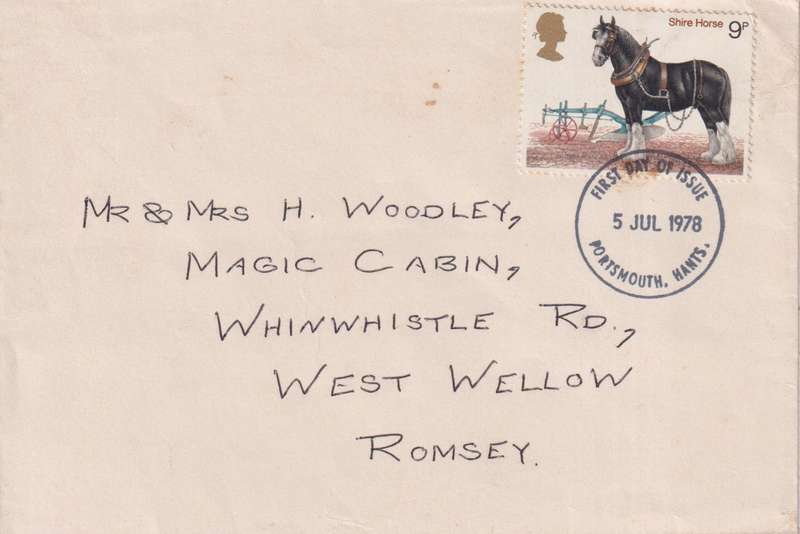 Shire Horse 9P
FIRST DAY OF ISSUE
5 JUL 1978
PORTSMOUTH, HANTS.
MR & MRS H. WOODLEY,
MAGIC CABIN,
WHINWHISTLE RD.,
WEST WELLOW
ROMSEY.